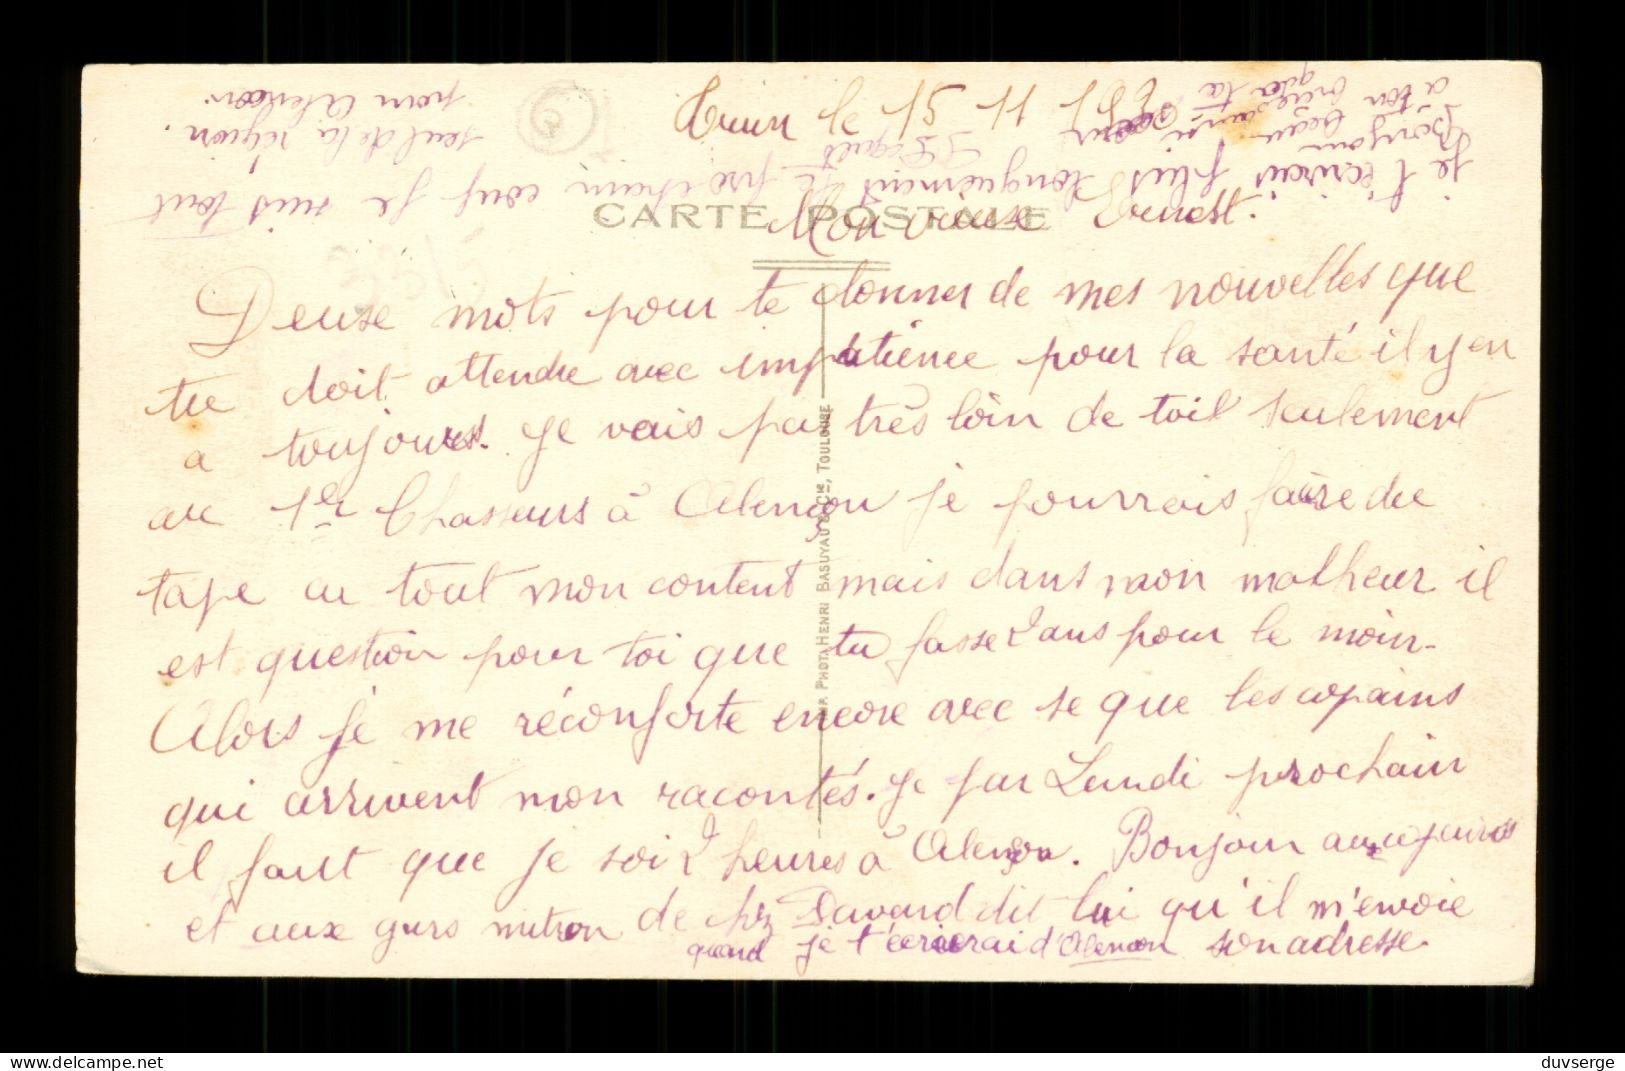 le 15 11
CARTE POSTALE
Mon vieuse Ernest.
Deuse mots pour te donner de mes nouvelles que
tu doit attendre avec impatience pour la santé il y en
a toujours. Je vais pas très loin de toit seulement
au 1er Chasseurs à Alençon je pourrais faire du
tape cu tout mon content mais dans mon malheur il
est question pour toi que tu fasse 2 ans pour le moin-
Alors je me réconforte encore avec se que les copains
qui arrivent mon racontés. Je par Lundi prochain
il faut que je soi 2 heures à Alençon. Bonjour au
et aux gars mitron de chz Davard dit lui qu'il m'envoie
son adresse.
quand je t'écrierai d'Alencon
je t'écrirais plus longuement le prochain coup je suis tout
seul de la région.
pour Alencon.
Bonjour
a ton
ainsi que ta
soeur
IMP. PHOT. HENRI BASUYAU & Cie, TOULOUSE
duvserge